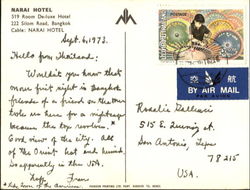 NARAI HOTEL
519 Room De-luxe Hotel
222 Silom Road, Bangkok
Cable: NARAI HOTEL
Sept. 6, 1973.
Hello from Thailand:
Wouldn't you know that
our first night in Bangkok
friends of a friend on the tour
took us here for a nightcap
because the top revolves.
Good view of the city. All
of the Orient hot and humid.
So apparently is the USA.
Fran
POSTAGE
BY AIR MAIL
PAR AVION
Rosalie
515 E.
San Antonio, Texas
78215
USA.